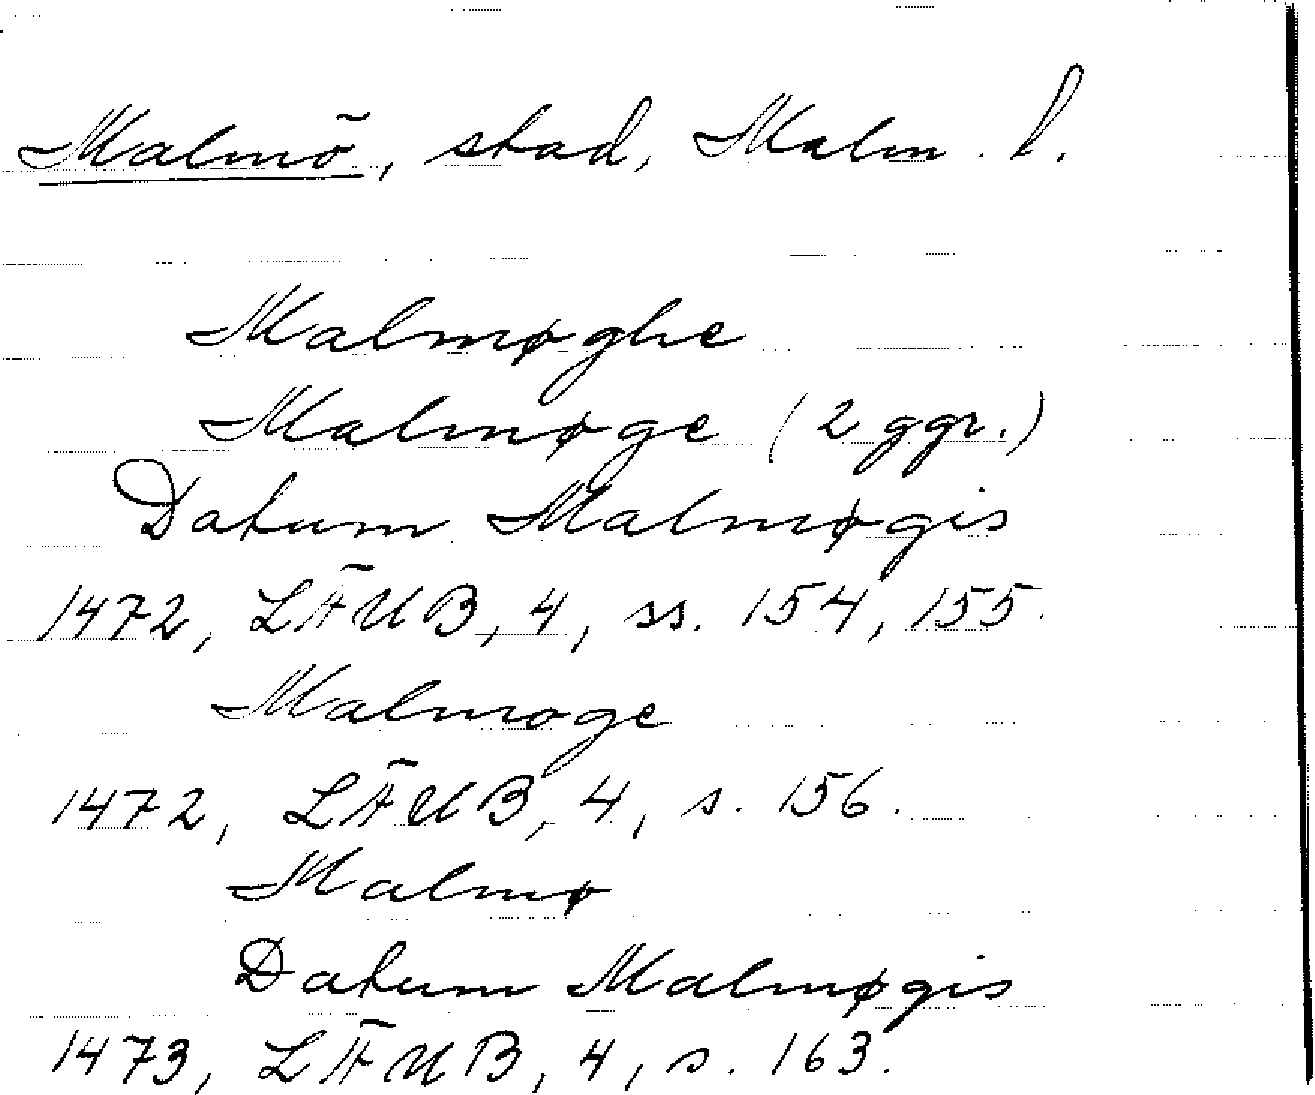 Malmö, stad, Malm. l.
Malmøghe
Malmøge (2 ggr.)
Datum Malmøgis
1472, LÄUB, 4, ss. 154, 155.
Malmoge
1472, LÄUB, 4, s. 156.
Malmø
Datum Malmøgis
1473, LÄUB, 4, s. 163.